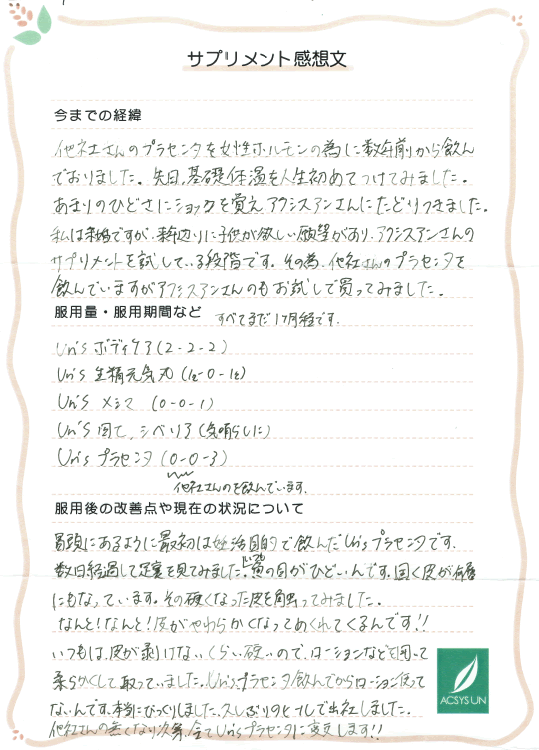 サプリメント感想文
今までの経緯
他社さんのプラセンタを女性ホルモンの為に数年前から飲ん
でおりました。先日、基礎体温を人生初めてつけてみました。
あまりのひどさにショックを覚えアクシスアンさんにたどりつきました。
私は未婚ですが、来年辺りに子供が欲しい願望があり、アクシスアンさんの
サプリメントを試している段階です。その為、他社さんのプラセンタを
飲んでいますがアクシスアンさんのもお試しで買ってみました。
服用量・服用期間など すべてまだ1ヶ月程です。
Un's ボディケア(2-2-2)
Un's 生精元気丸(1c-0-1c)
Un's メシマ (0-0-1)
Un's 田七、シベリア(気晴らしに)
Un's プラセンタ(0-0-3)
他社さんのを飲んでいます。
服用後の改善点や現在の状況について
冒頭にあるように最初は妊活目的で飲んだUn'sプラセンタです。
数日経過して足裏を見てみました。いつも魚の目がひどいんです。固く皮が何層
にもなっています。その硬くなった皮を触ってみました。
なんと!なんと!皮がやわらかくなってめくれてくるんです!!
いつもは、皮が剥けないくらい硬いので、ローションなどを用いて
柔らかくして取っていました。Un'sプラセンタ飲んでからローション使って
ないんです。本当にびっくりしました。久しぶりのヒールで出社しました。
他社さんの無くなり次第、全てUn'sプラセンタに変更します!!
ACSYS UN